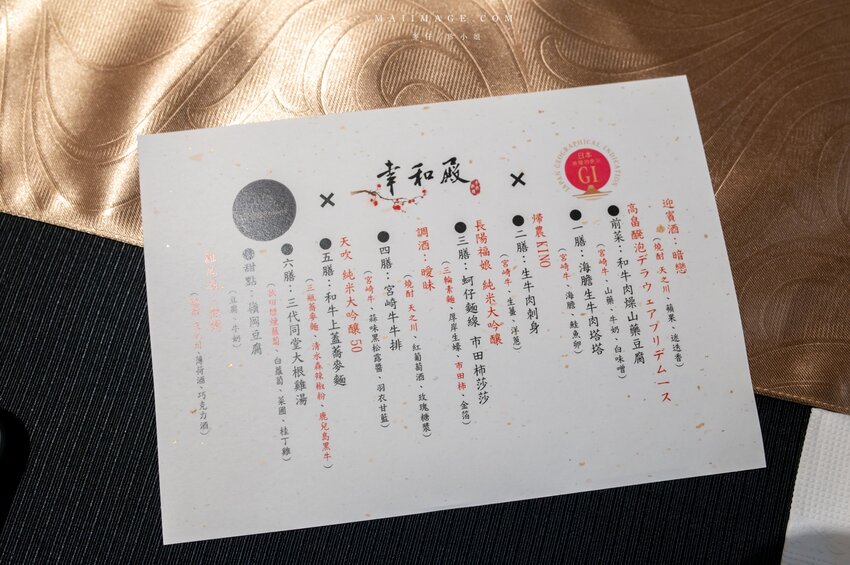 MAIIMAGE.COM
幸和殿
×
×
JAPAN GEOGRAPHICAL INDICATION
日本
GI
迎賓酒：暗戀
(燒酎 天之川、蘋果、迷迭香)
高畠醗泡デラウェアプリデムース
前菜：和牛肉燥山藥豆腐
(宮崎牛、山藥、牛奶、白味噌)
一膳：海膽生牛肉塔塔
(宮崎牛、海膽、鮭魚卵)
帰農KINO
二膳：生牛肉刺身
(宮崎牛、生薑、洋蔥)
長陽福娘 純米大吟釀
三膳：蚵仔麵線 市田柿莎莎
(三輪素麵、厚岸生蠔、市田柿、金箔)
調酒：曖昧
(燒酎 天之川、紅葡萄酒、玫瑰糖漿)
四膳：宮崎牛牛排
(宮崎牛、蒜味黑松露醬、羽衣甘藍)
天吹 純米大吟釀 50
五膳：和牛上蓋蕎麥麵
(三瓶蕎麥麵、清水森辣椒粉、鹿兒島黑牛)
六膳：三代同堂大根雞湯
白蘿蔔、菜圃、桂丁雞)
甜點：嶺岡豆腐
(豆腐、牛奶)
薄荷酒、巧克力酒)